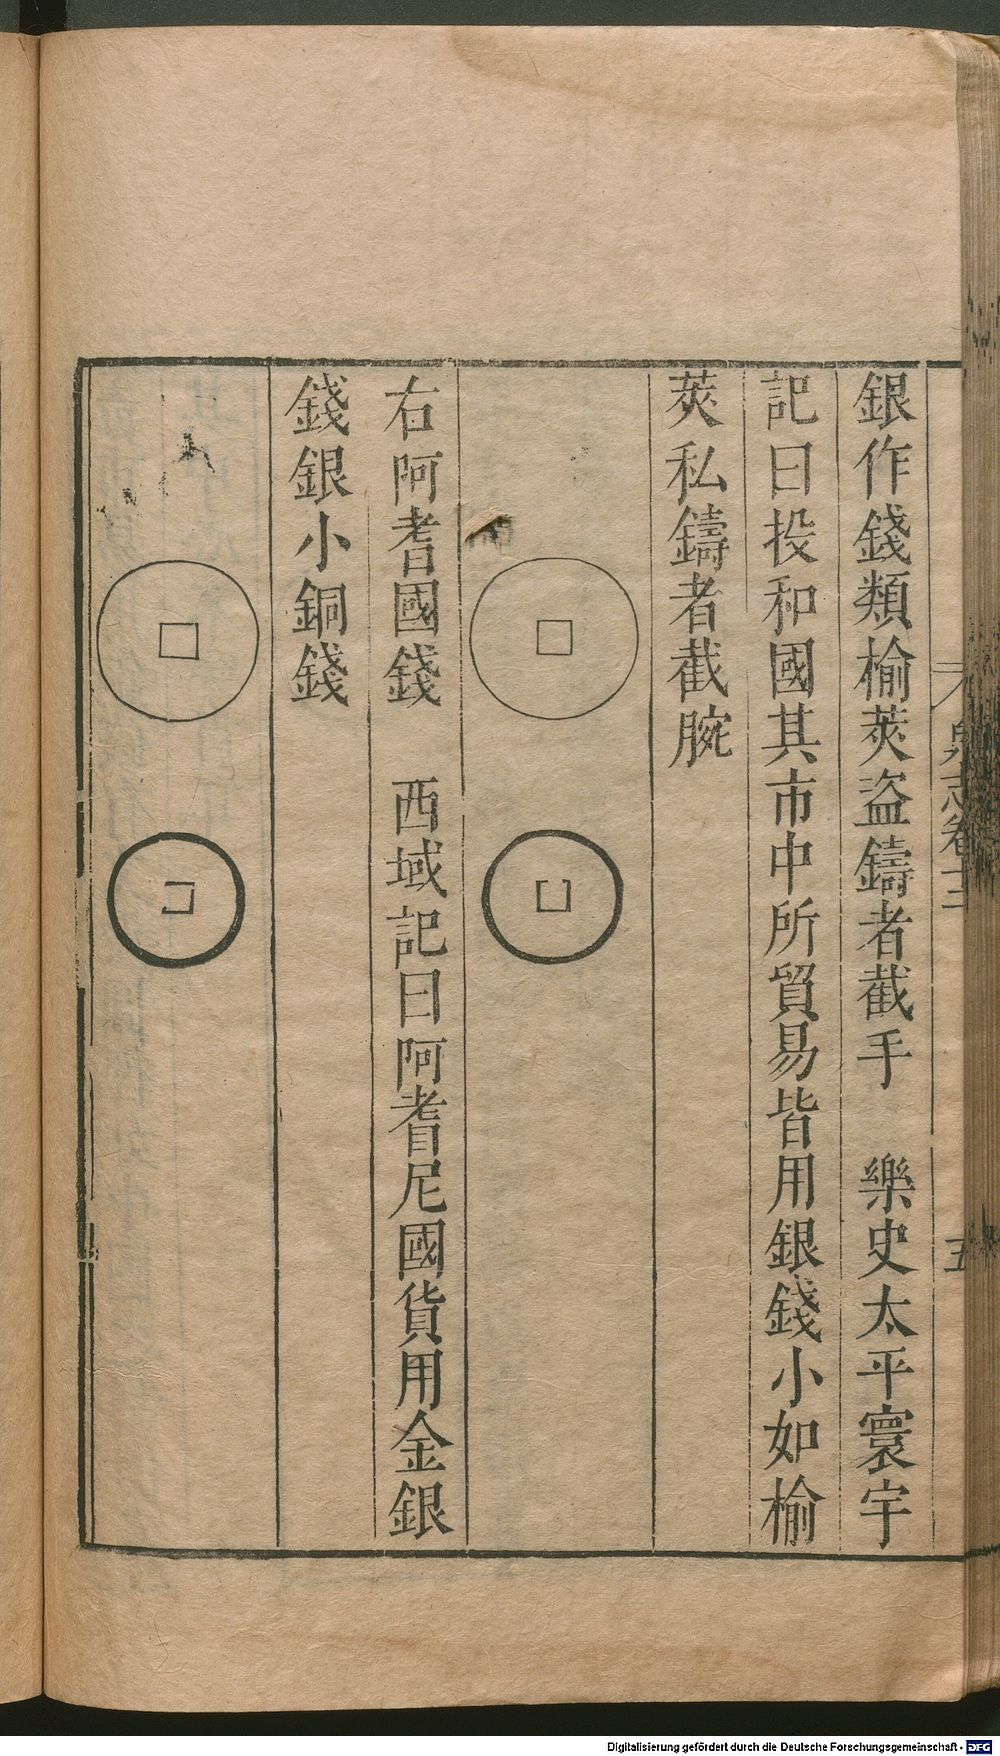 銀作錢類榆莢盜鑄者截手　樂史太平寰宇
記曰投和國其市中所貿易皆用銀錢小如榆
莢私鑄者截腕
右阿耆國錢　西域記曰阿耆尼國貨用金銀
錢銀小銅錢
泉志卷十二
五
Digitalisierung gefördert durch die Deutsche Forschungsgemeinschaft - DFG